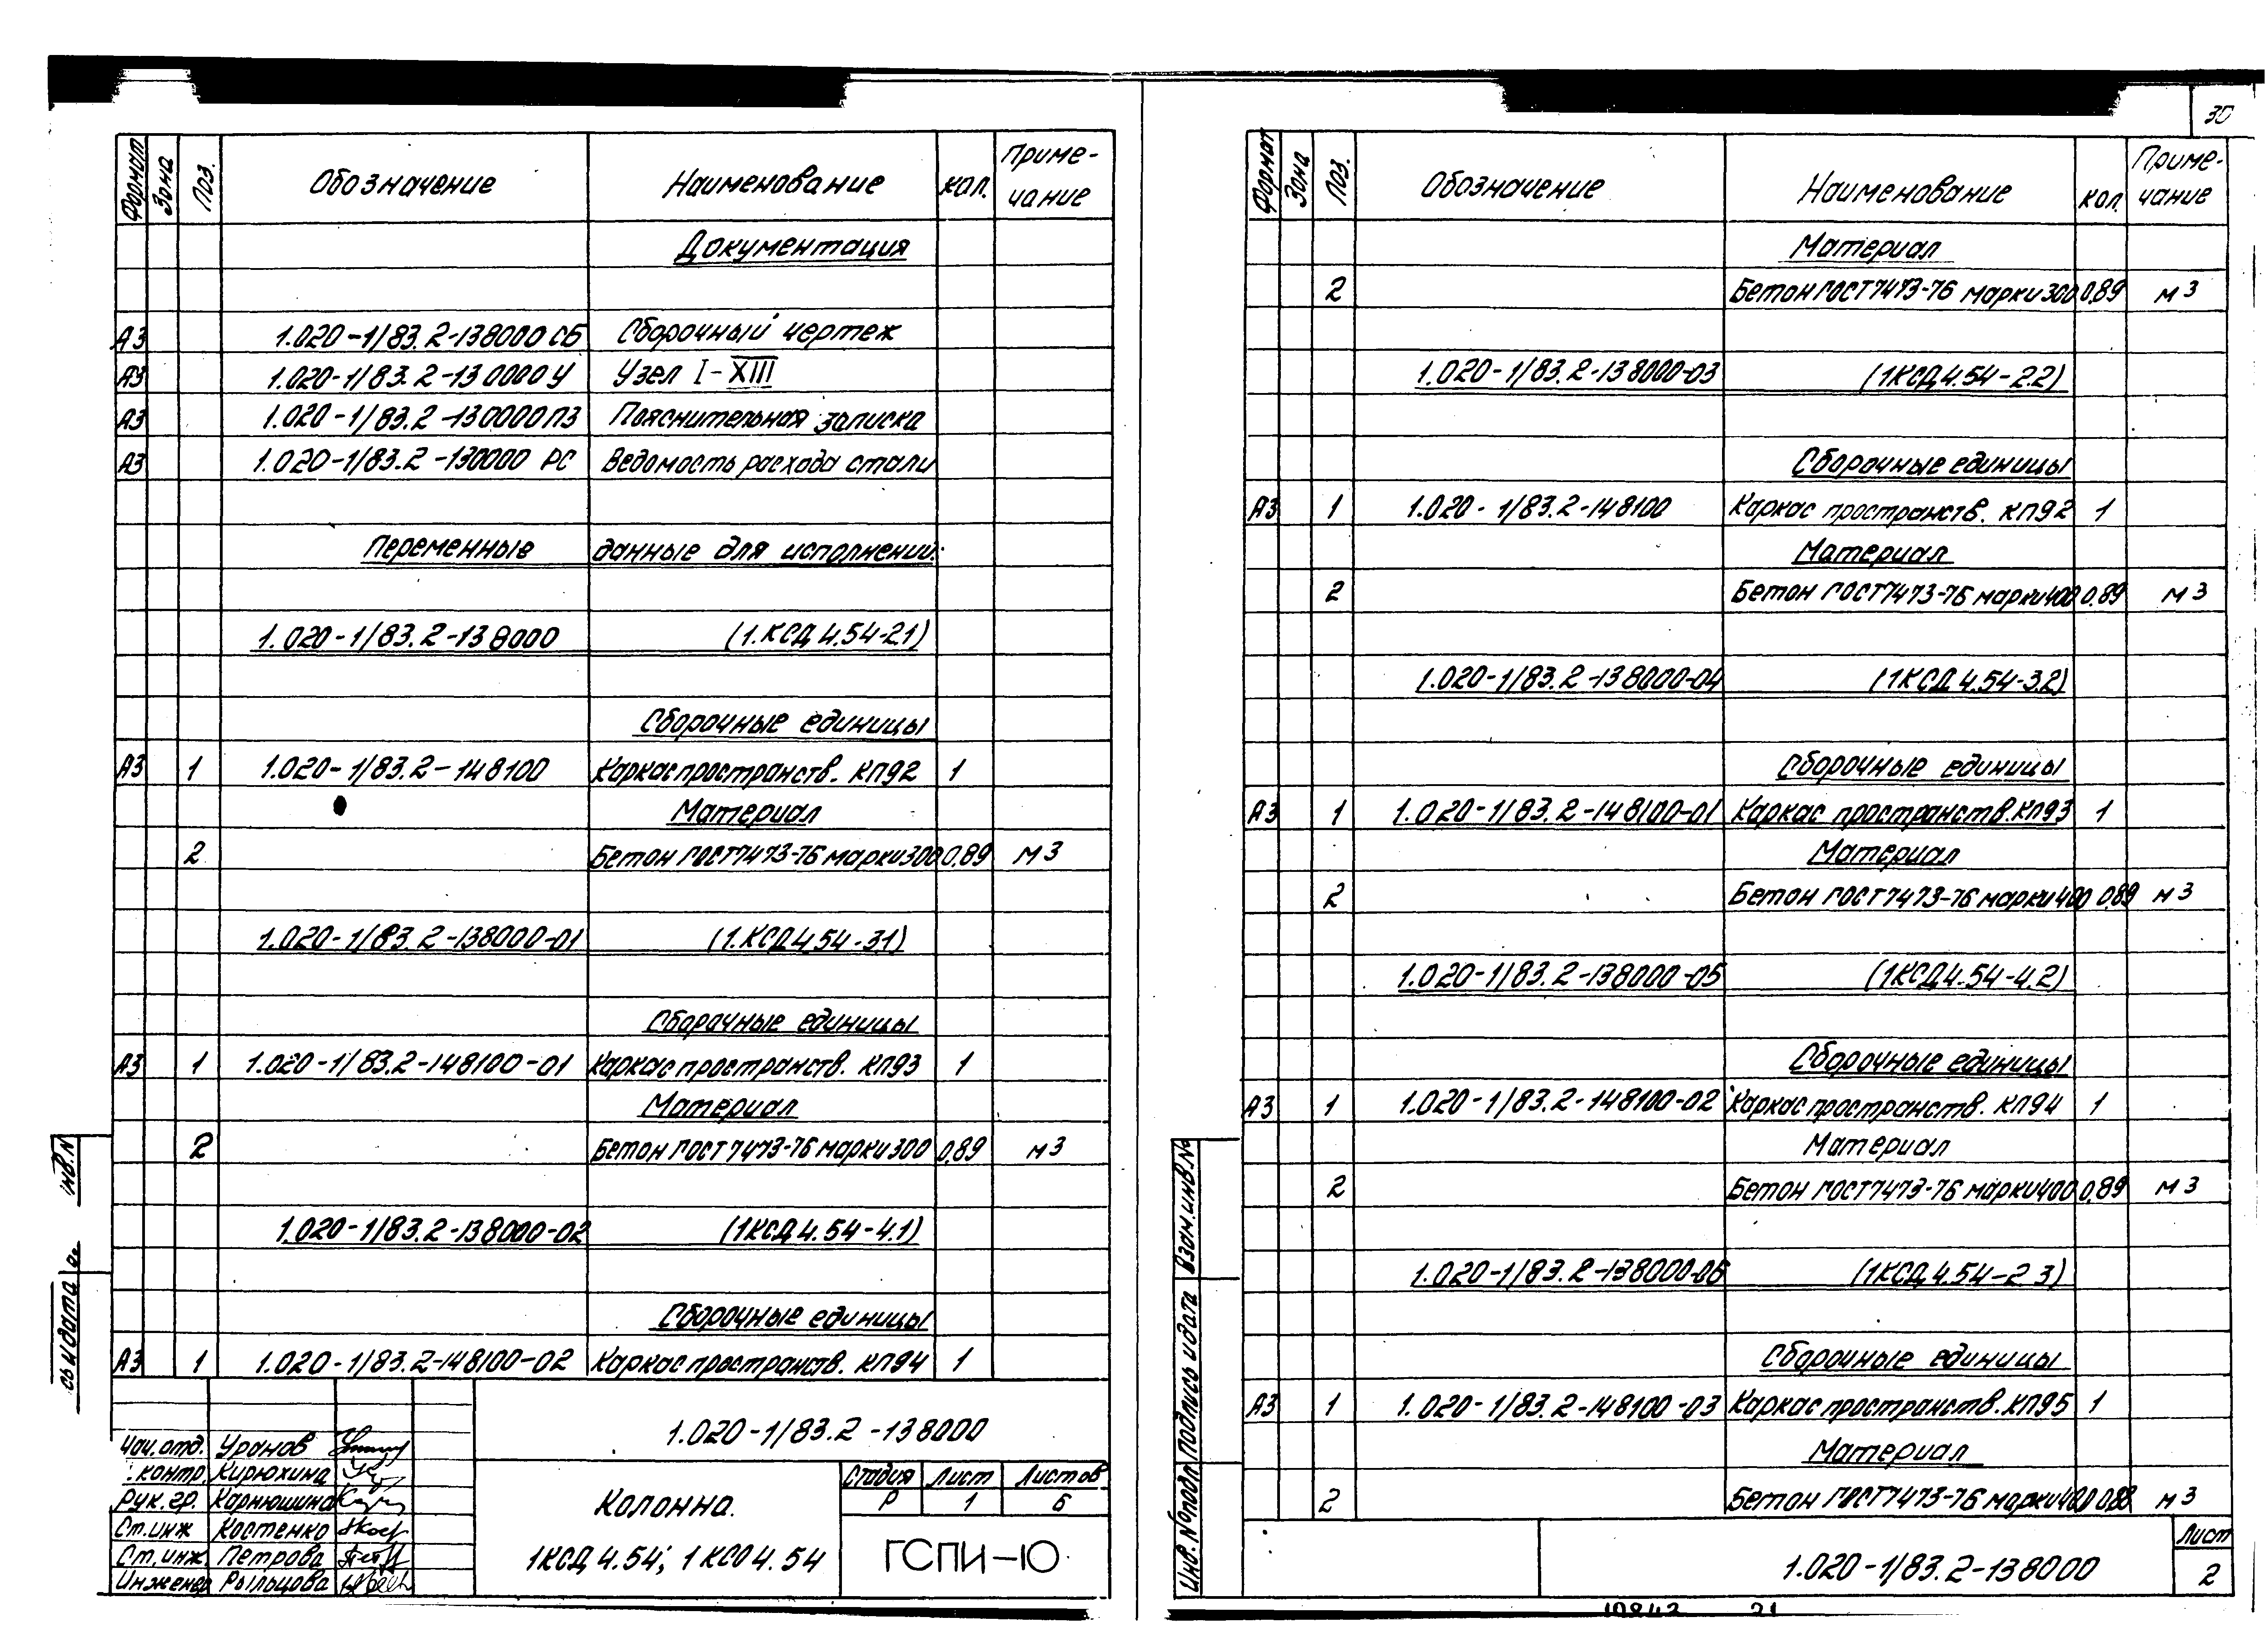 Формат Зона Поз. Обозначение Наименование Кол. Приме-
чание
Документация
А3 1.020-1/83.2-138000 СБ Сборочный чертеж
А3 1.020-1/83.2-130000У Узел I-XIII
А3 1.020-1/83.2-130000ПЗ Пояснительная записка
А3 1.020-1/83.2-130000 РС Ведомость расхода стали
Переменные данные для исполнений:
1.020-1/83.2-138000 (1.КСД 4.54-2.1)
Сборочные единицы
А3 1 1.020-1/83.2-148100 Каркас пространств. КП92 1
Материал
2 Бетон ГОСТ 7473-76 марки 300 0,89 м3
1.020-1/83.2-138000-01 (1.КСД 4.54-3.1)
Сборочные единицы
А3 1 1.020-1/83.2-148100-01 Каркас пространств. КП93 1
Материал
2 Бетон ГОСТ 7473-76 марки 300 0,89 м3
1.020-1/83.2-138000-02 (1КСД 4.54-4.1)
Сборочные единицы
А3 1 1.020-1/83.2-148100-02 Каркас пространств. КП94 1
1.020-1/83.2-138000
Нач. отд. Уранов
контр. Кирюхина
Рук. гр. Карнюшина
Ст. инж Костенко
Ст. инж. Петрова
Инженер Рыльцова
Колонна.
1КСД 4.54; 1КСО 4.54
Стадия Лист Листов
Р 1 6
ГСПИ-10
инв. N
сь и дата
30
Формат Зона Поз. Обозначение Наименование Кол. Приме-
чание
Материал
2 Бетон ГОСТ 7473-76 марки 300 0,89 м3
1.020-1/83.2-138000-03 (1КСД 4.54-2.2)
Сборочные единицы
А3 1 1.020-1/83.2-148100 Каркас пространств. КП92 1
Материал
2 Бетон ГОСТ 7473-76 марки 400 0,89 м3
1.020-1/83.2-138000-04 (1КСД 4.54-3.2)
Сборочные единицы
А3 1 1.020-1/83.2-148100-01 Каркас пространств. КП93 1
Материал
2 Бетон ГОСТ 7473-76 марки 400 0,89 м3
1.020-1/83.2-138000-05 (1КСД 4.54-4.2)
Сборочные единицы
А3 1 1.020-1/83.2-148100-02 Каркас пространств. КП94 1
Материал
2 Бетон ГОСТ 7473-76 марки 400 0,89 м3
1.020-1/83.2-138000-06 (1КСД 4.54-2 3)
Сборочные единицы
А3 1 1.020-1/83.2-148100-03 Каркас пространств. КП95 1
Материал
2 Бетон ГОСТ 7473-76 марки 400 м3
1.020-1/83.2-138000
Лист
2
Инв. № подл Подпись и дата Взам. инв №